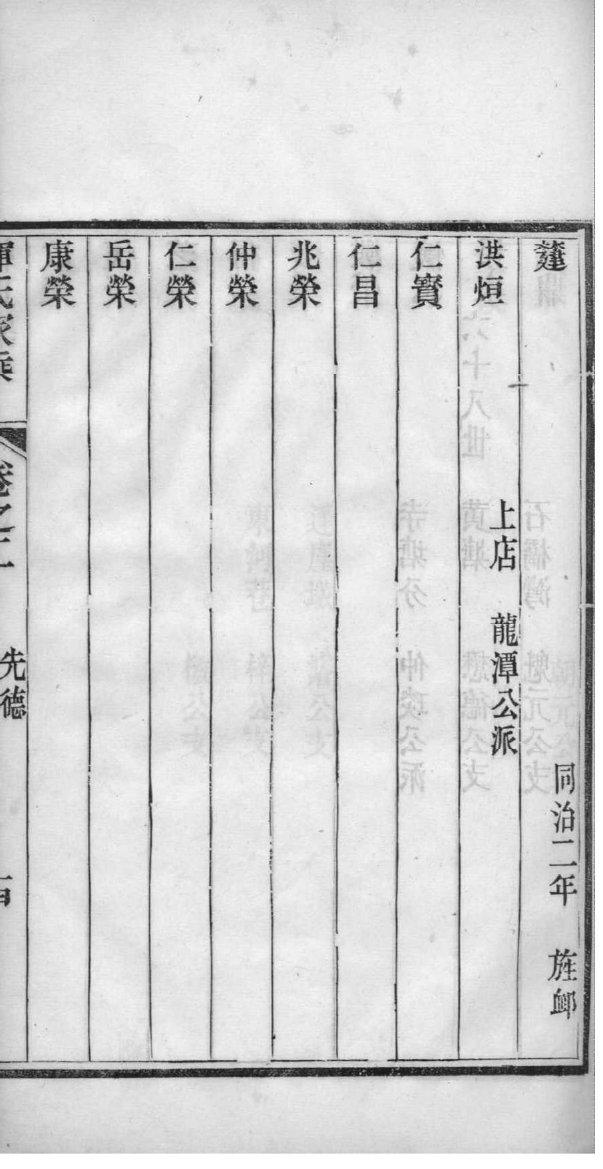 薳 同治二年 旌卹
洪烜 上店 龍潭公派
仁寳
仁昌
兆榮
仲榮
仁榮
岳榮
康榮
惲氏家乘 卷之二 先德